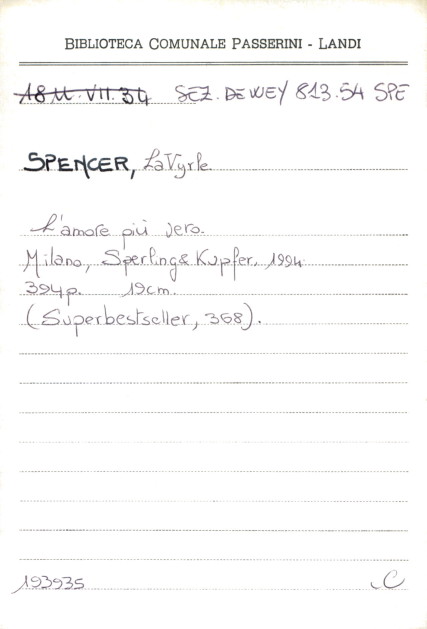 BIBLIOTECA COMUNALE PASSERINI - LANDI
18 M. VII. 34 SEZ. DEWEY 813.54 SPE
SPENCER, LaVyrle
L'amore più vero.
Milano, Sperling & Kupfer, 1994
394p. 19cm.
(Superbestseller, 368).
193935 C